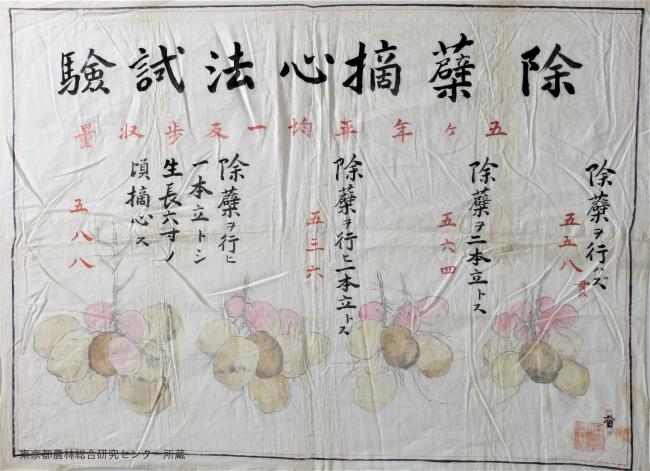 除蘖摘心法試驗
五ヶ年平均一反歩収量
除蘖ヲ行ハズ
五五八貫
除蘖ヲ二本立トス
五六四
除蘖ヲ行ヒ一本立トス
五三六
除蘖ヲ行ヒ
一本立トシ
生長六寸ノ
頃摘心ス
五八八
東京都農林総合研究センター所蔵